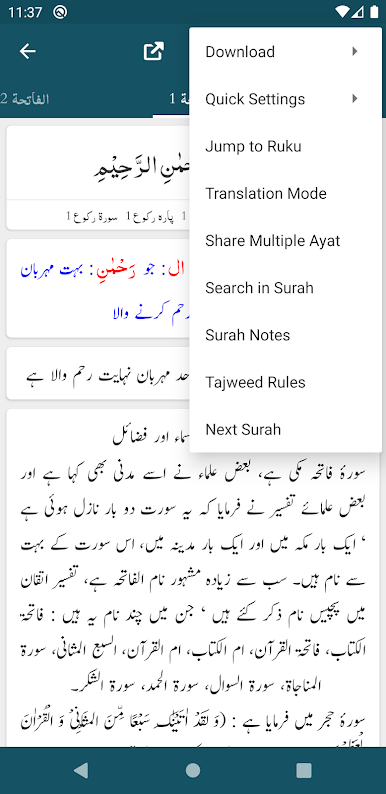 11:37
Download
Quick Settings
Jump to Ruku
Translation Mode
Share Multiple Ayat
Search in Surah
Surah Notes
Tajweed Rules
Next Surah
1
الفاتحة 2
الرَّحِيْمِ
1 پارہ رکوع 1 سورۃ رکوع 1
ال: جو رَحْمٰنِ: بہت مہربان
رحم کرنے والا
مہربان نہایت رحم والا ہے
اور فضائل
سورۂ فاتحہ مکی ہے، بعض علماء نے اسے مدنی بھی کہا ہے اور
بعض علمائے تفسیر نے فرمایا کہ یہ سورت دو بار نازل ہوئی ہے
‘ ایک بار مکہ میں اور ایک بار مدینہ میں، اس سورت کے بہت
سے نام ہیں۔ سب سے زیادہ مشہور نام الفاتحہ ہے، تفسیر اتقان
میں پچیس نام ذکر کئے ہیں ‘ جن میں چند نام یہ ہیں : فاتحۃ
الکتاب، فاتحۃ القرآن، ام الکتاب، ام القرآن، السبع المثانی، سورۃ
المناجاۃ، سورۃ السوال، سورۃ الحمد، سورۃ الشکر۔
سورۂ حجر میں فرمایا ہے : (وَ لَقَدْ اٰتَیْنٰكَ سَبْعًا مِّنَ الْمَثَانِیْ وَ الْقُرْاٰنَ